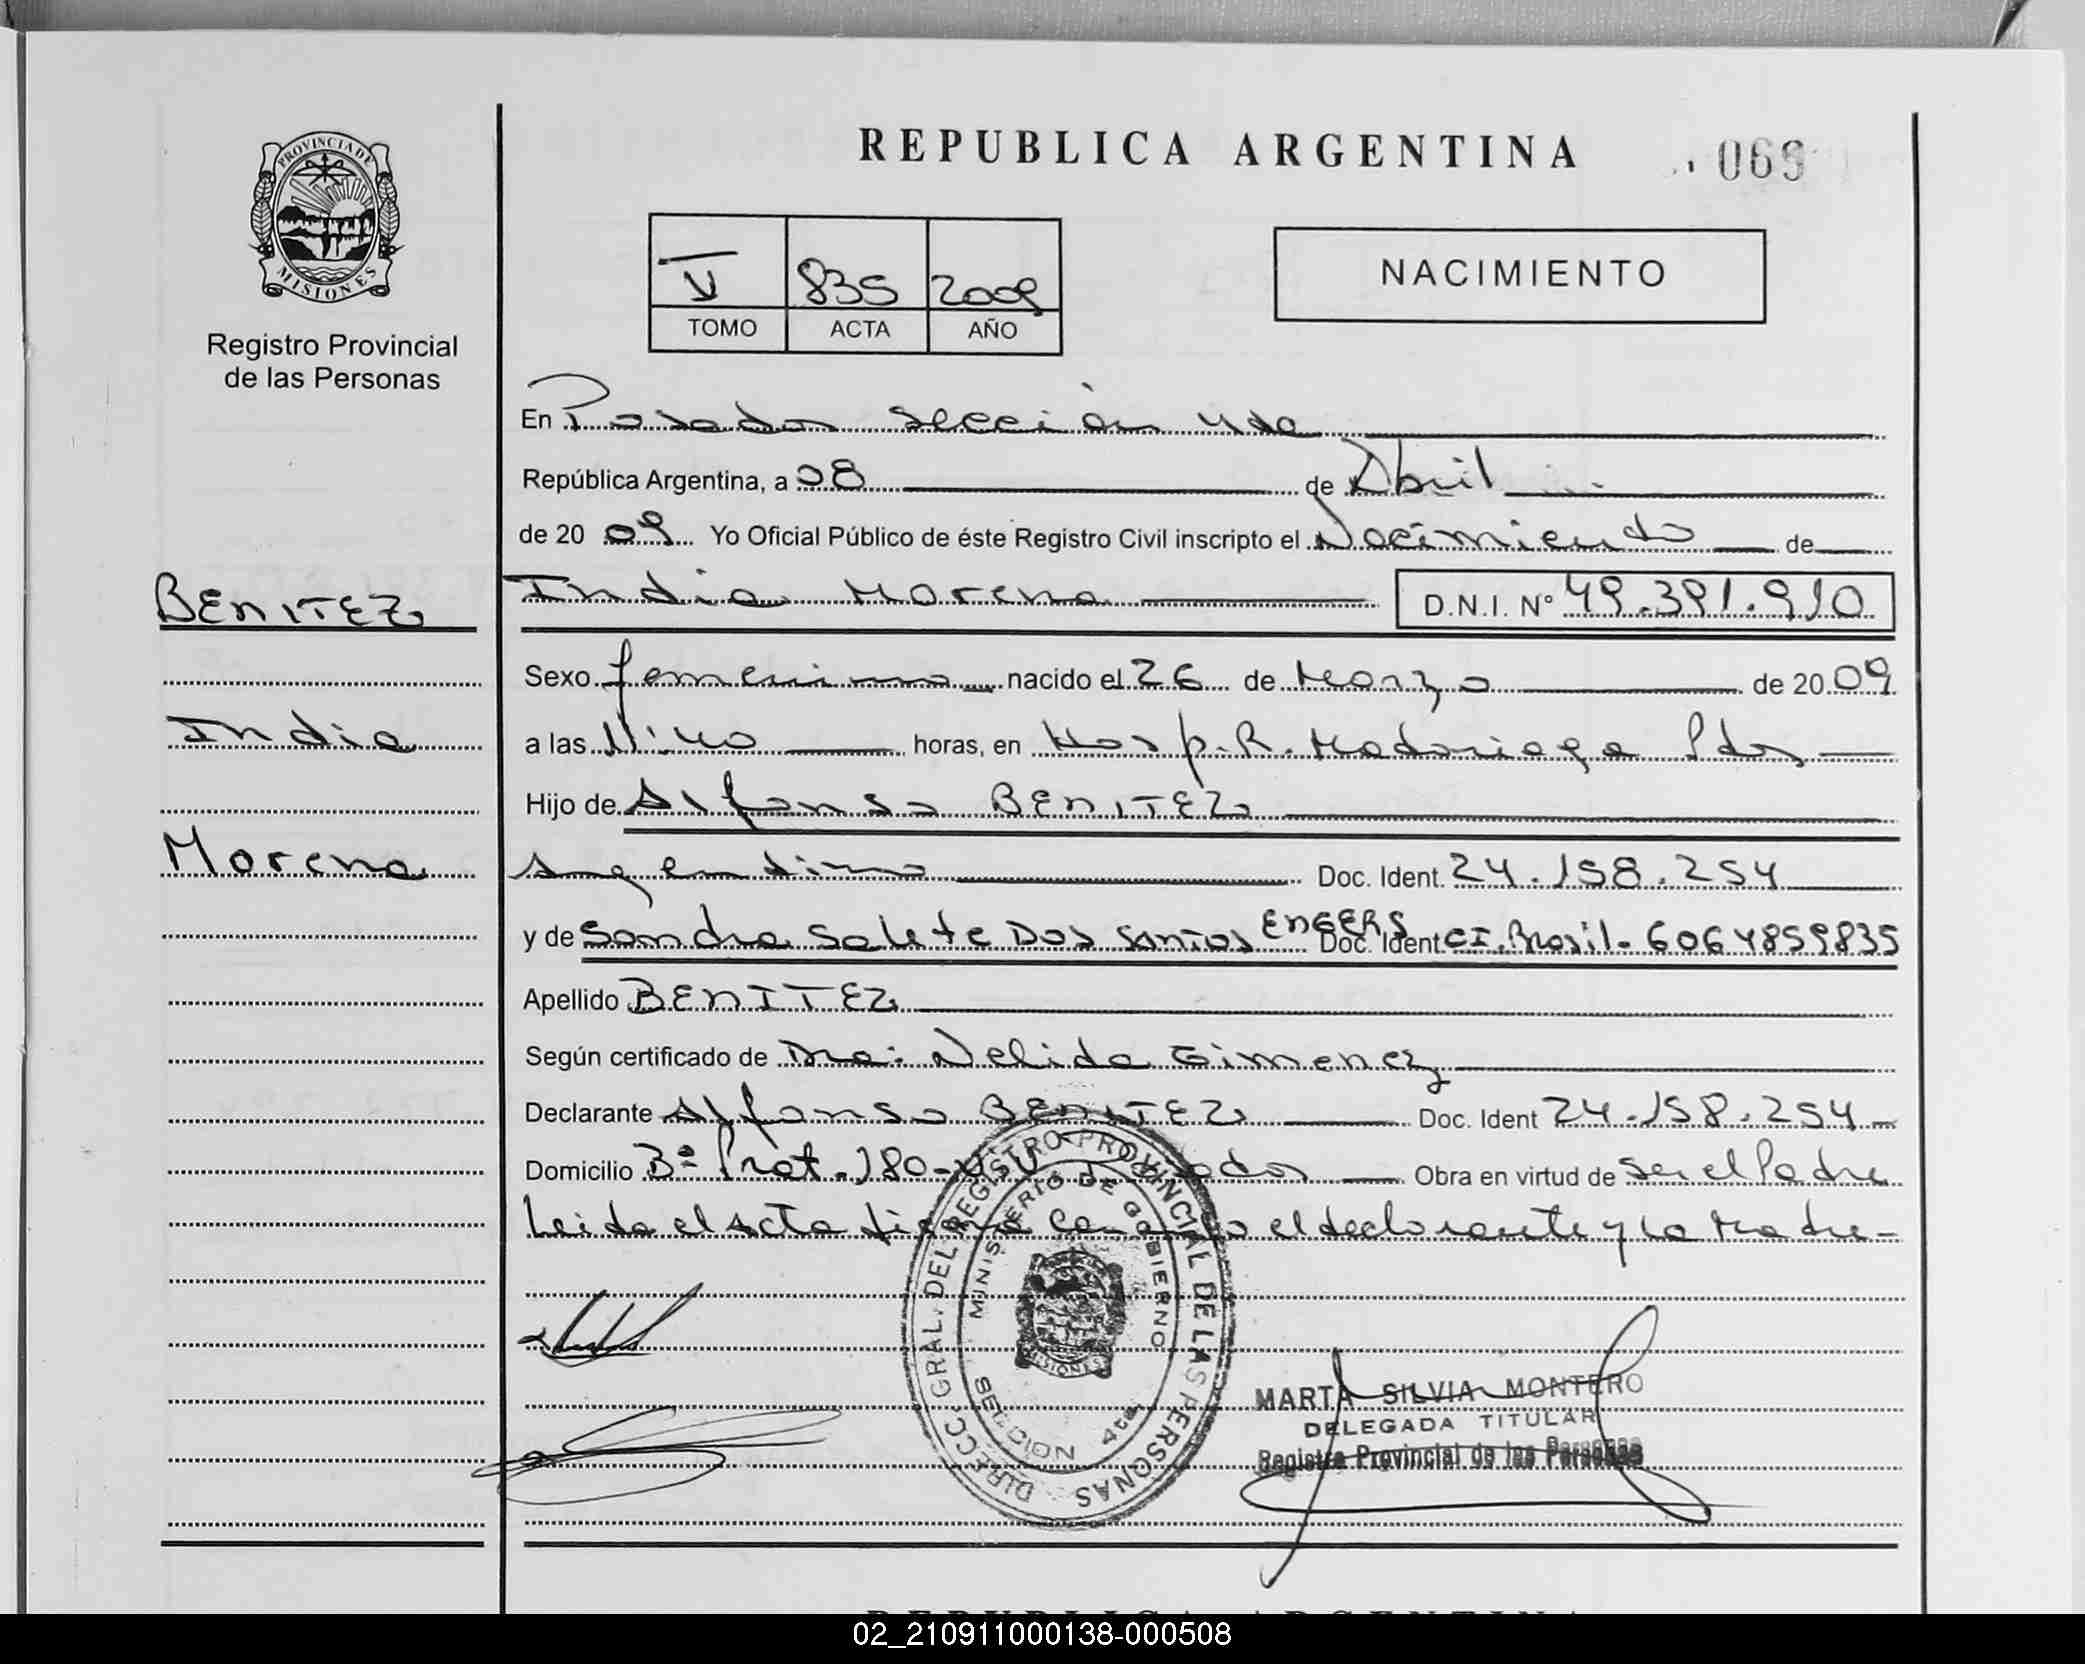 REPUBLICA ARGENTINA
069
PROVINCIA DE
MISIONES
Registro Provincial
de las Personas
V 835 2009
TOMO ACTA AÑO
NACIMIENTO
En Posadas sección 4ta
República Argentina, a 08 de Abril
de 2009 Yo Oficial Público de éste Registro Civil inscripto el Nacimiento de
BENITEZ
India Morena D.N.I. N° 49.391.910
Sexo femenino nacido el 26 de Marzo de 2009
India
a las 11:40 horas, en Hosp. R. Madariaga Pdas
Hijo de Alfonso BENITEZ
Morena
Argentino Doc. Ident. 24.158.254
y de Sandra Salete DOS SANTOS ENGERS Doc. Ident CI. Brasil. 6064859835
Apellido BENITEZ
Según certificado de Dra: Nelida Gimenez
Declarante Alfonso BENITEZ Doc. Ident 24.158.254
Domicilio Bº Prot. 180 Obra en virtud de ser el Padre
Leida el Acta el declarante y la Madre
DIRECC. GRAL. DEL REGISTRO PROVINCIAL DE LAS PERSONAS
MINISTERIO DE GOBIERNO
SECCION 4ta.
MISIONES
MARTA SILVIA MONTERO
DELEGADA TITULAR
Registro Provincial de las Personas
REPUBLICA ARGENTINA
02_210911000138-000508